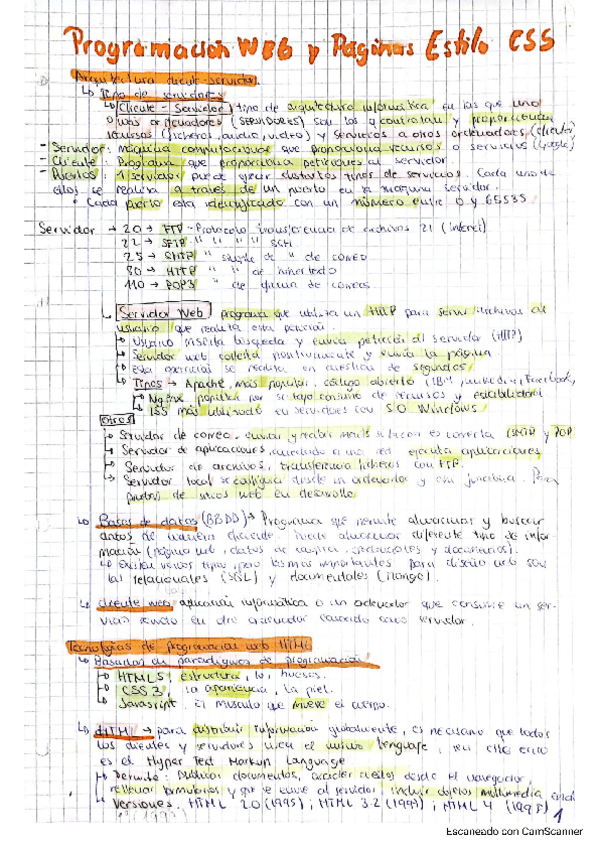 Programación WEB y Páginas Estilo CSS
Arquitectura cliente-servidor.
↳ Tipo de servidores
↳ Cliente - Servidor: tipo de arquitectura informática en las que uno
o más ordenadores (SERVIDORES) son los q controlan y proporcionan
recursos (ficheros, audio, video) y servicios a otros ordenadores (clientes)
- Servidor: máquina computacional que proporciona recursos o servicios (Google)
- Cliente: Programa que proporciona peticiones al servidor.
- Puertos: 1 servidor puede crear distintos tipos de servicios. Cada uno de
ellos se realiza a través de un puerto en la máquina servidor.
• Cada puerto está identificado con un número entre 0 y 65535
Servidor → 20 → FTP - Protocolo transferencia de archivos 21 (interel)
22 → SFTP " " " " SSH
25 → SMTP " simple de " de correo
80 → HTTP " " de hipertexto
110 → POP3 " de oficina de correos
Servidor Web: programa que utiliza un HTTP para servir archivos al
usuario que realiza esta petición.
Usuario realiza búsqueda y envía petición al servidor (HTTP)
Servidor web contesta positivamente y envía la página
Esta operación se realiza en cuestión de segundos
Tipos → Apache, más popular, código abierto (IBM, Facebook,
Nginx, popular por su bajo consumo de recursos y estabilidad
ISS más utilizado en servidores con S.O Windows
Otros
Servidor de correo, enviar y recibir mails (SMTP y POP
Servidor de aplicaciones, conectado a una red ejecuta aplicaciones
Servidor de archivos, transferencia ficheros con FTP.
Servidor local se configura desde un ordenador Para
pruebas de sitios web en desarrollo
↳ Bases de datos (BBDD) → Programa que permite almacenar y buscar
datos de manera eficiente. Puede almacenar diferente tipo de infor-
mación (página web, datos de credenciales y documentos).
Existen varios tipos, pero los más importantes para diseño web son
las relacionales (SQL) y documentales (Mongo).
↳ Cliente web, aplicación informática o un ordenador que consume un ser-
vicio remoto en otro ordenador conocido como servidor.
Tecnologías de programación web HTML
↳ Basados en paradigmas de programación
HTML5, estructura, los huesos.
CSS3, la apariencia, la piel.
Javascript. El músculo que mueve el cuerpo.
↳ HTML → para distribuir información globalmente, es necesario que todos
los clientes y servidores usen el mismo lenguaje, en este caso
es el Hyper Text Markup Language
Permite: Publicar documentos, acceder desde el navegador,
rellenar formularios y que se envíe al servidor, incluir objetos multimedia
Versiones. HTML 2.0 (1995); HTML 3.2 (1997); HTML 4 (1998)
1
Escaneado con CamScanner